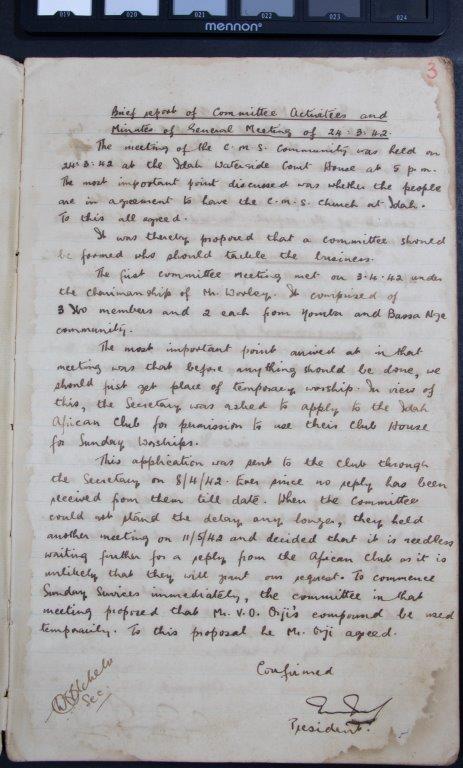 019 020 021 022 023 024
mennon®
3
Brief report of Committee Activitees and
Minutes of General Meeting of 24:3:42.
The meeting of the C.M.S. Community was held on
24:3:42 at the Idah Waterside Court House at 5 p.m.
The most important point discussed was whether the people
are in agreement to have the C.M.S. Church at Idah.
To this all agreed.
It was thereby proposed that a committee should
be formed who should tackle the business.
The first committee meeting met on 3.4.42 under
the chairmanship of Mr. Worley. It comprised of
3 Ibo members and 2 each from Yoruba and Bassa Nge
community.
The most important point arrived at in that
meeting was that before anything should be done, we
should first get place of temporary worship. In view of
this, the Secretary was asked to apply to the Idah
African Club for permission to use their Club House
for Sunday Worships.
This application was sent to the Club through
the Secretary on 8/4/42. Ever since no reply has been
received from them till date. When the Committee
could not stand the delay any longer, they held
another meeting on 11/5/42 and decided that it is needless
waiting further for a reply from the African Club as it is
unlikely that they will grant our request. To commence
Sunday Services immediately, the committee in that
meeting proposed that Mr. V.O. Orji's compound be used
temporarily. To this proposal he Mr. Orji agreed.
Confirmed
Sec.
President.